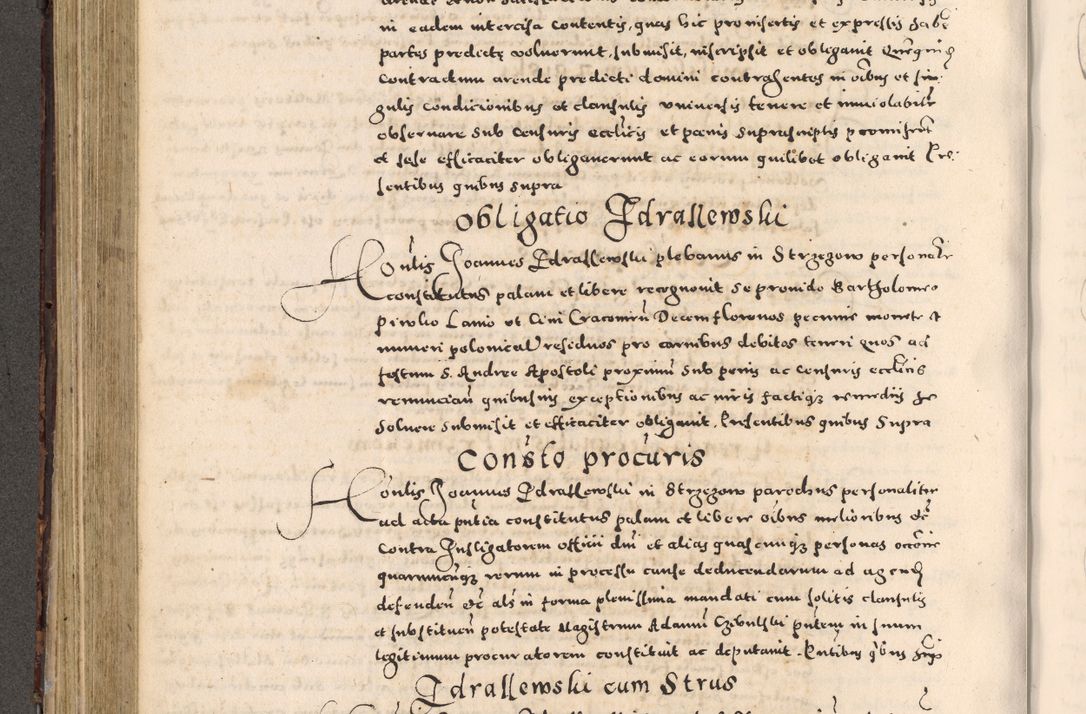 in eadem intercisa contentis, quas hic pro insertis et expressis habe
partes predictę voluerunt, submisit, inscripsit et obligavit Quęquidē
contractum arende predicti domini contrahentes in oībus et sin
gulis condicionibus et clausulis universis tenere et inviolabilr
observare sub censuris ecclīcis et pœnis suprascriptis promiserūt
et sese efficaciter obligaverunt ac eorum quilibet obligavit Pre
sentibus quibus supra
Obligatio Zdrallewski
Honlis Joannes Zdrallewski plebanus in Strzegow personalr
constitutus palam et libere recognovit se provido Bartholomeo
Pirolio Lanio et Civi Cracovien Decem florenos pecunie monete et
numeri polonical residuos pro carnibus debitos teneri quos ad
festum S. Andree Apostoli proximū sub penis ac censuris ecclīcis
renunciaū quibusvis exceptionibus ac iuris factiqz remediis se
solvere submisit et efficaciter obligavit. Presentibus quibus supra
Consto procuris
Honlis Joannes Zdrallewski in Strzegow parochus personaliter
ad acta pntia constitutus palam et libere oībus melioribus etc
contra Instigatorem officii dni et alias quascunqz personas occōne
quarumcunqz rerum in processu cause deducendarum ad agendū
defendenū etc als in forma plenissima mandati cum solitis clausulis
et substituenī potestate Magistrum Adamū pntem in suum
legitimum procuratorem constituit ac deputavit. Pntibus qbus supra
Zdrallewski cum Strus